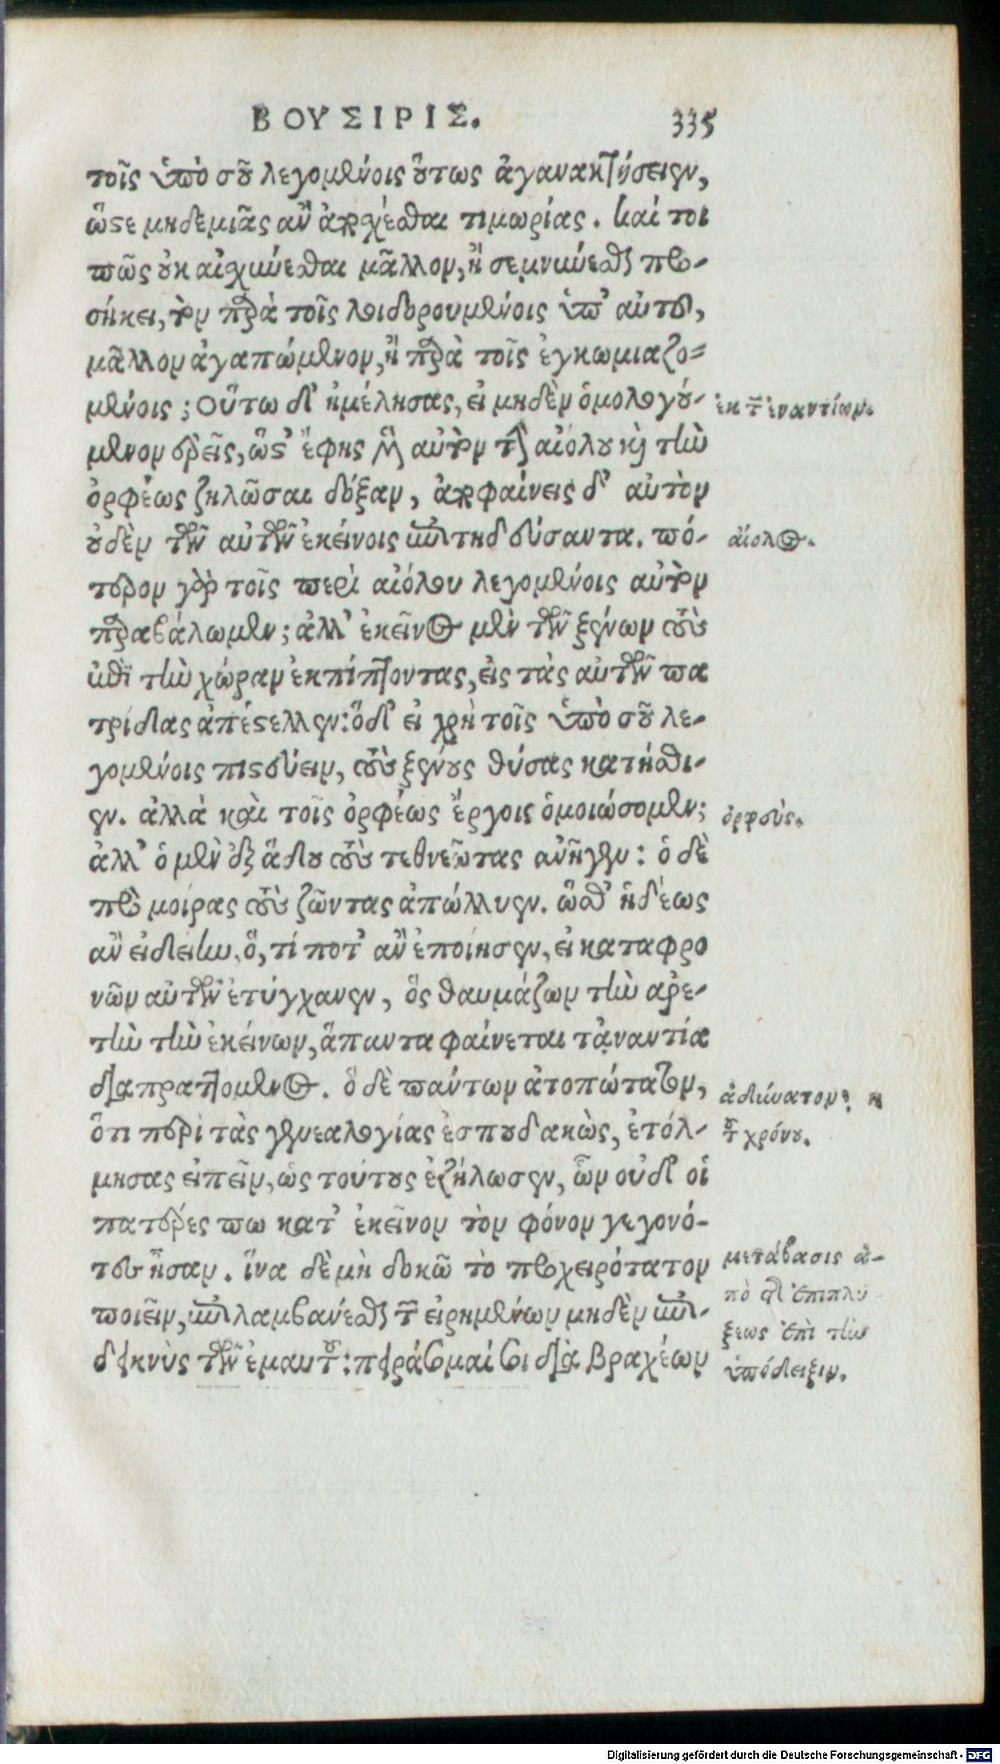 ΒΟΥΣΙΡΙΣ. 335
τοῖς ὑπὸ σοῦ λεγομένοις οὕτως ἀγανακτήσειεν,
ὥστε μηδεμιᾶς ἂν ἀποσχέσθαι τιμωρίας. καί τοι
πῶς οὐκ αἰσχύνεσθαι μᾶλλον, ἢ σεμνύνεσθαι προ-
σήκει, τὸν παρὰ τοῖς λοιδορουμένοις ὑπ' αὐτοῦ,
μᾶλλον ἀγαπώμενον, ἢ παρὰ τοῖς ἐγκωμιαζο-
μένοις; Οὕτω δ' ἠμέλησας, εἰ μηδὲν ὁμολογού- ἐκ τῶν ἐναντίων.
μενον ἐρεῖς, ὥστ' ἔφης μὲν αὐτὸν τὴν αἰόλου καὶ τὴν
ὀρφέως ζηλῶσαι δόξαν, ἀποφαίνεις δ' αὐτὸν
οὐδὲν τῶν αὐτῶν ἐκείνοις ἐπιτηδεύσαντα. πό- αἴολος.
τερον γὰρ τοῖς περὶ αἰόλου λεγομένοις αὐτὸν
παραβάλωμεν; ἀλλ' ἐκεῖνος μὲν τῶν ξένων τοὺς
ἐπὶ τὴν χώραν ἐκπίπτοντας, εἰς τὰς αὐτῶν πα
τρίδας ἀπέστελλεν: ὁ δ' εἰ χρὴ τοῖς ὑπὸ σοῦ λε-
γομένοις πιστεύειν, τοὺς ξένους θύσας κατήσθι-
εν. ἀλλὰ καὶ τοῖς ὀρφέως ἔργοις ὁμοιώσομεν; ὀρφεύς.
ἀλλ' ὁ μὲν ἐξ ᾅδου τοὺς τεθνεῶτας ἀνῆγεν: ὁ δὲ
πρὸ μοίρας τοὺς ζῶντας ἀπώλλυεν. ὥσθ' ἡδέως
ἂν εἰδείην, ὅ, τί ποτ' ἂν ἐποίησεν, εἰ καταφρο
νῶν αὐτῶν ἐτύγχανεν, ὃς θαυμάζων τὴν ἀρε-
τὴν τὴν ἐκείνων, ἅπαντα φαίνεται τἀναντία
διαπραττόμενος. ὃ δὲ πάντων ἀτοπώτατον, ἀδύνατον: ἐκ
ὅτι περὶ τὰς γενεαλογίας ἐσπουδακὼς, ἐτόλ- τοῦ χρόνου.
μησας εἰπεῖν, ὡς τούτους ἐζήλωσεν, ὧν οὐδ' οἱ
πατέρες πω κατ' ἐκεῖνον τὸν φόνον γεγονό-
τες ἦσαν. ἵνα δὲ μὴ δοκῶ τὸ προχειρότατον μετάβασις ἀ-
ποιεῖν, ἐπιλαμβάνεσθαι τῶν εἰρημένων μηδὲν ἐπι- πὸ τῆς ἐπιπλή
δεικνὺς τῶν ἐμαυτοῦ: πειράσομαί σοι διὰ βραχέων ξεως ἐπὶ τὴν
ὑπόδειξιν.